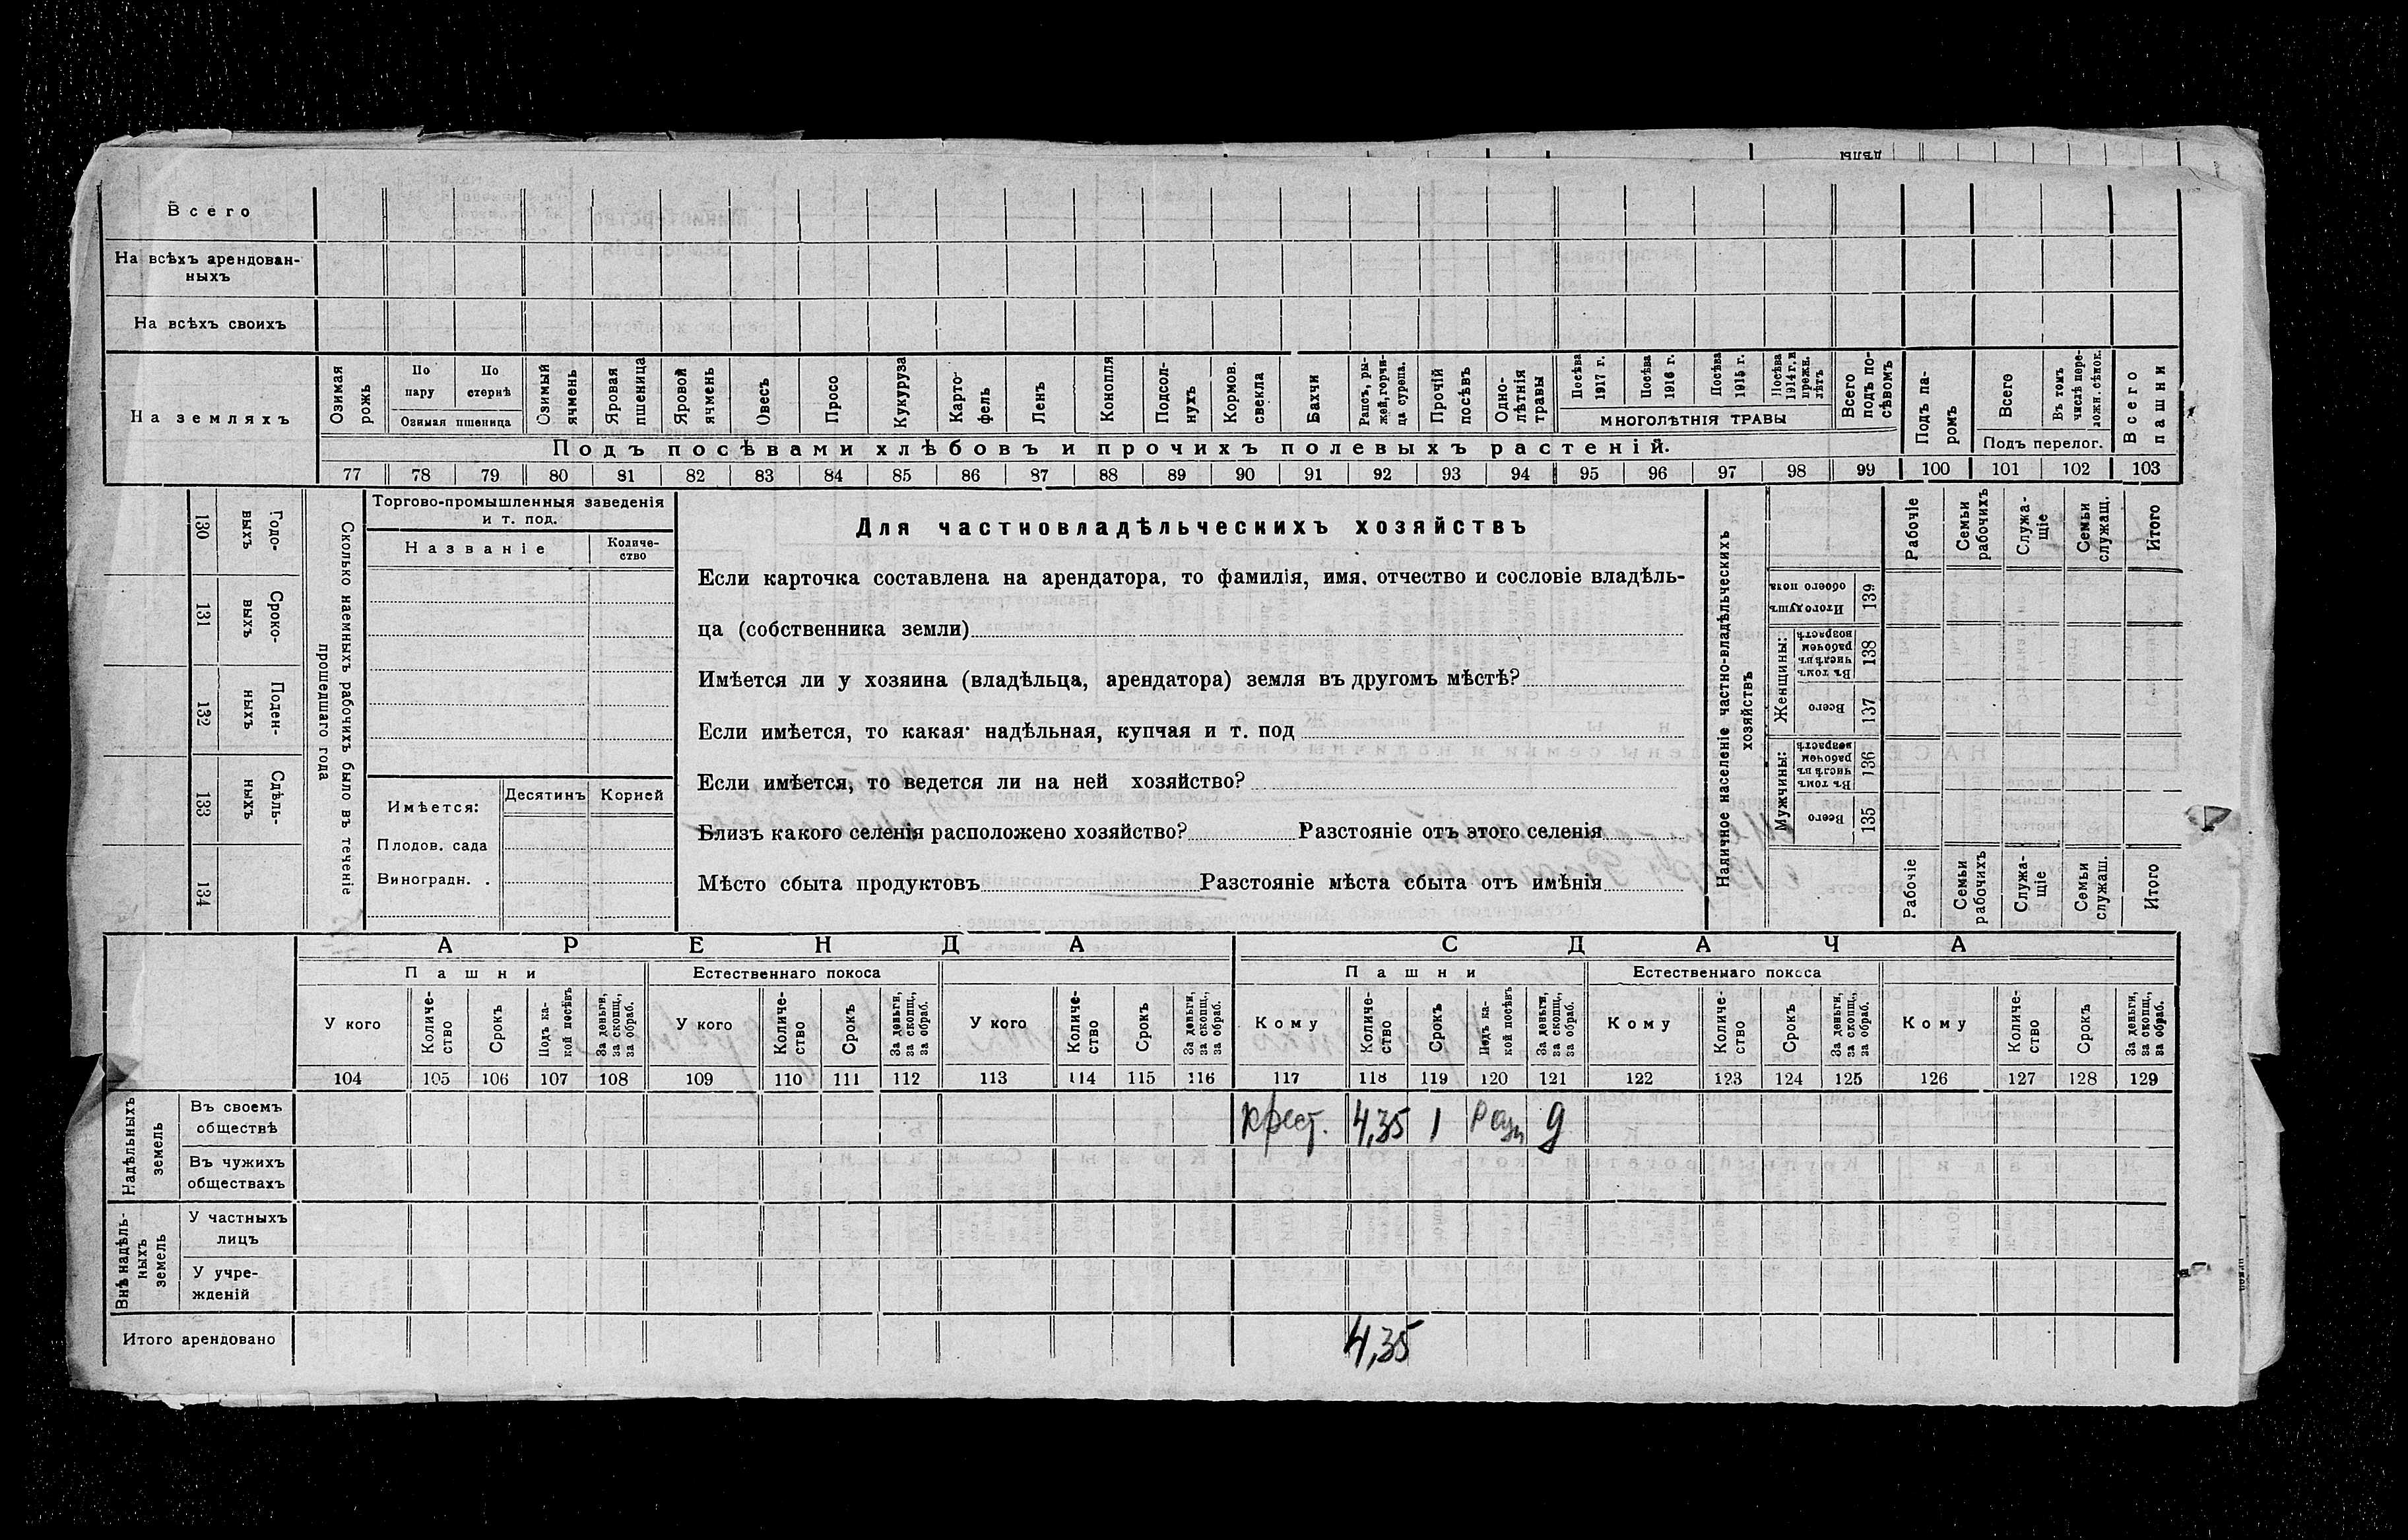 ДѢЛЫ
Всего
На всѣхъ арендован-
ныхъ
На всѣхъ своихъ
На земляхъ
Озимая рожь
По пару
По стернѣ
Озимая пшеница
Озимый ячмень
Яровая пшеница
Яровой ячмень
Овесъ
Просо
Кукуруза
Карто-
фель
Ленъ
Конопля
Подсол-
нухъ
Кормов. свекла
Бахчи
Рапсъ, ры-
жей, горчи-
ца сурепа.
Прочій посѣвъ
Одно-
лѣтнія травы
Посѣва 1917 г.
Посѣва 1916 г.
Посѣва 1915 г.
Посѣва 1914 г. и прежн. лѣтъ
МНОГОЛѢТНІЯ ТРАВЫ
Всего подъ по-
сѣвомъ
Подъ па-
ромъ
Всего
Въ томъ числѣ пере-
ложн. сѣнок.
Подъ перелог.
Всего пашни
Подъ посѣвами хлѣбовъ и прочихъ полевыхъ растеній.
77 78 79 80 81 82 83 84 85 86 87 88 89 90 91 92 93 94 95 96 97 98 99 100 101 102 103
130 Годо-
выхъ
131 Сроко-
выхъ
132 Поден-
ныхъ
133 Сдѣль-
ныхъ
134
Сколько наемныхъ рабочихъ было въ теченіе
прошедшаго года
Торгово-промышленныя заведенія
и т. под.
Названіе
Количе-
ство
Имѣется:
Десятинъ
Корней
Плодов. сада
Виноградн. .
Для частновладѣльческихъ хозяйствъ
Если карточка составлена на арендатора, то фамилія, имя, отчество и сословіе владѣль-
ца (собственника земли)
Имѣется ли у хозяина (владѣльца, арендатора) земля въ другомъ мѣстѣ?
Если имѣется, то какая: надѣльная, купчая и т. под
Если имѣется, то ведется ли на ней хозяйство?
Близъ какого селенія расположено хозяйство? Разстояніе отъ этого селенія
Мѣсто сбыта продуктовъ Разстояніе мѣста сбыта отъ имѣнія
Наличное населеніе частно-владѣльческихъ
хозяйствъ
Рабочіе
Семьи рабочихъ
Служа-
щіе
Семьи служащ.
Итого
Итого душъ обоего пола 139
Женщины:
Въ томъ числѣ въ рабочем возрастѣ 138
Всего 137
Мужчины:
Въ томъ числѣ въ рабочем возрастѣ 136
Всего 135
Рабочіе
Семьи рабочихъ
Служа-
щіе
Семьи служащ.
Итого
АРЕНДА
СДАЧА
Пашни
Естественнаго покоса
Пашни
Естественнаго покоса
У кого
Количе-
ство
Срокъ
Подъ ка-
кой посѣвъ
За деньги, за скопщ., за обраб.
У кого
Количе-
ство
Срокъ
За деньги, за скопщ., за обраб.
У кого
Количе-
ство
Срокъ
За деньги, за скопщ., за обраб.
Кому
Количе-
ство
Срокъ
Подъ ка-
кой посѣвъ
За деньги, за скопщ., за обраб.
Кому
Количе-
ство
Срокъ
За деньги, за скопщ., за обраб.
Кому
Количе-
ство
Срокъ
За деньги, за скопщ., за обраб.
104 105 106 107 108 109 110 111 112 113 114 115 116 117 118 119 120 121 122 123 124 125 126 127 128 129
Надѣльныхъ земель
Въ своемъ
обществѣ
Крест. 4,35 1 д
Въ чужихъ
обществахъ
Внѣ надѣль-
ныхъ земель
У частныхъ
лицъ
У учре-
жденій
Итого арендовано
4,35